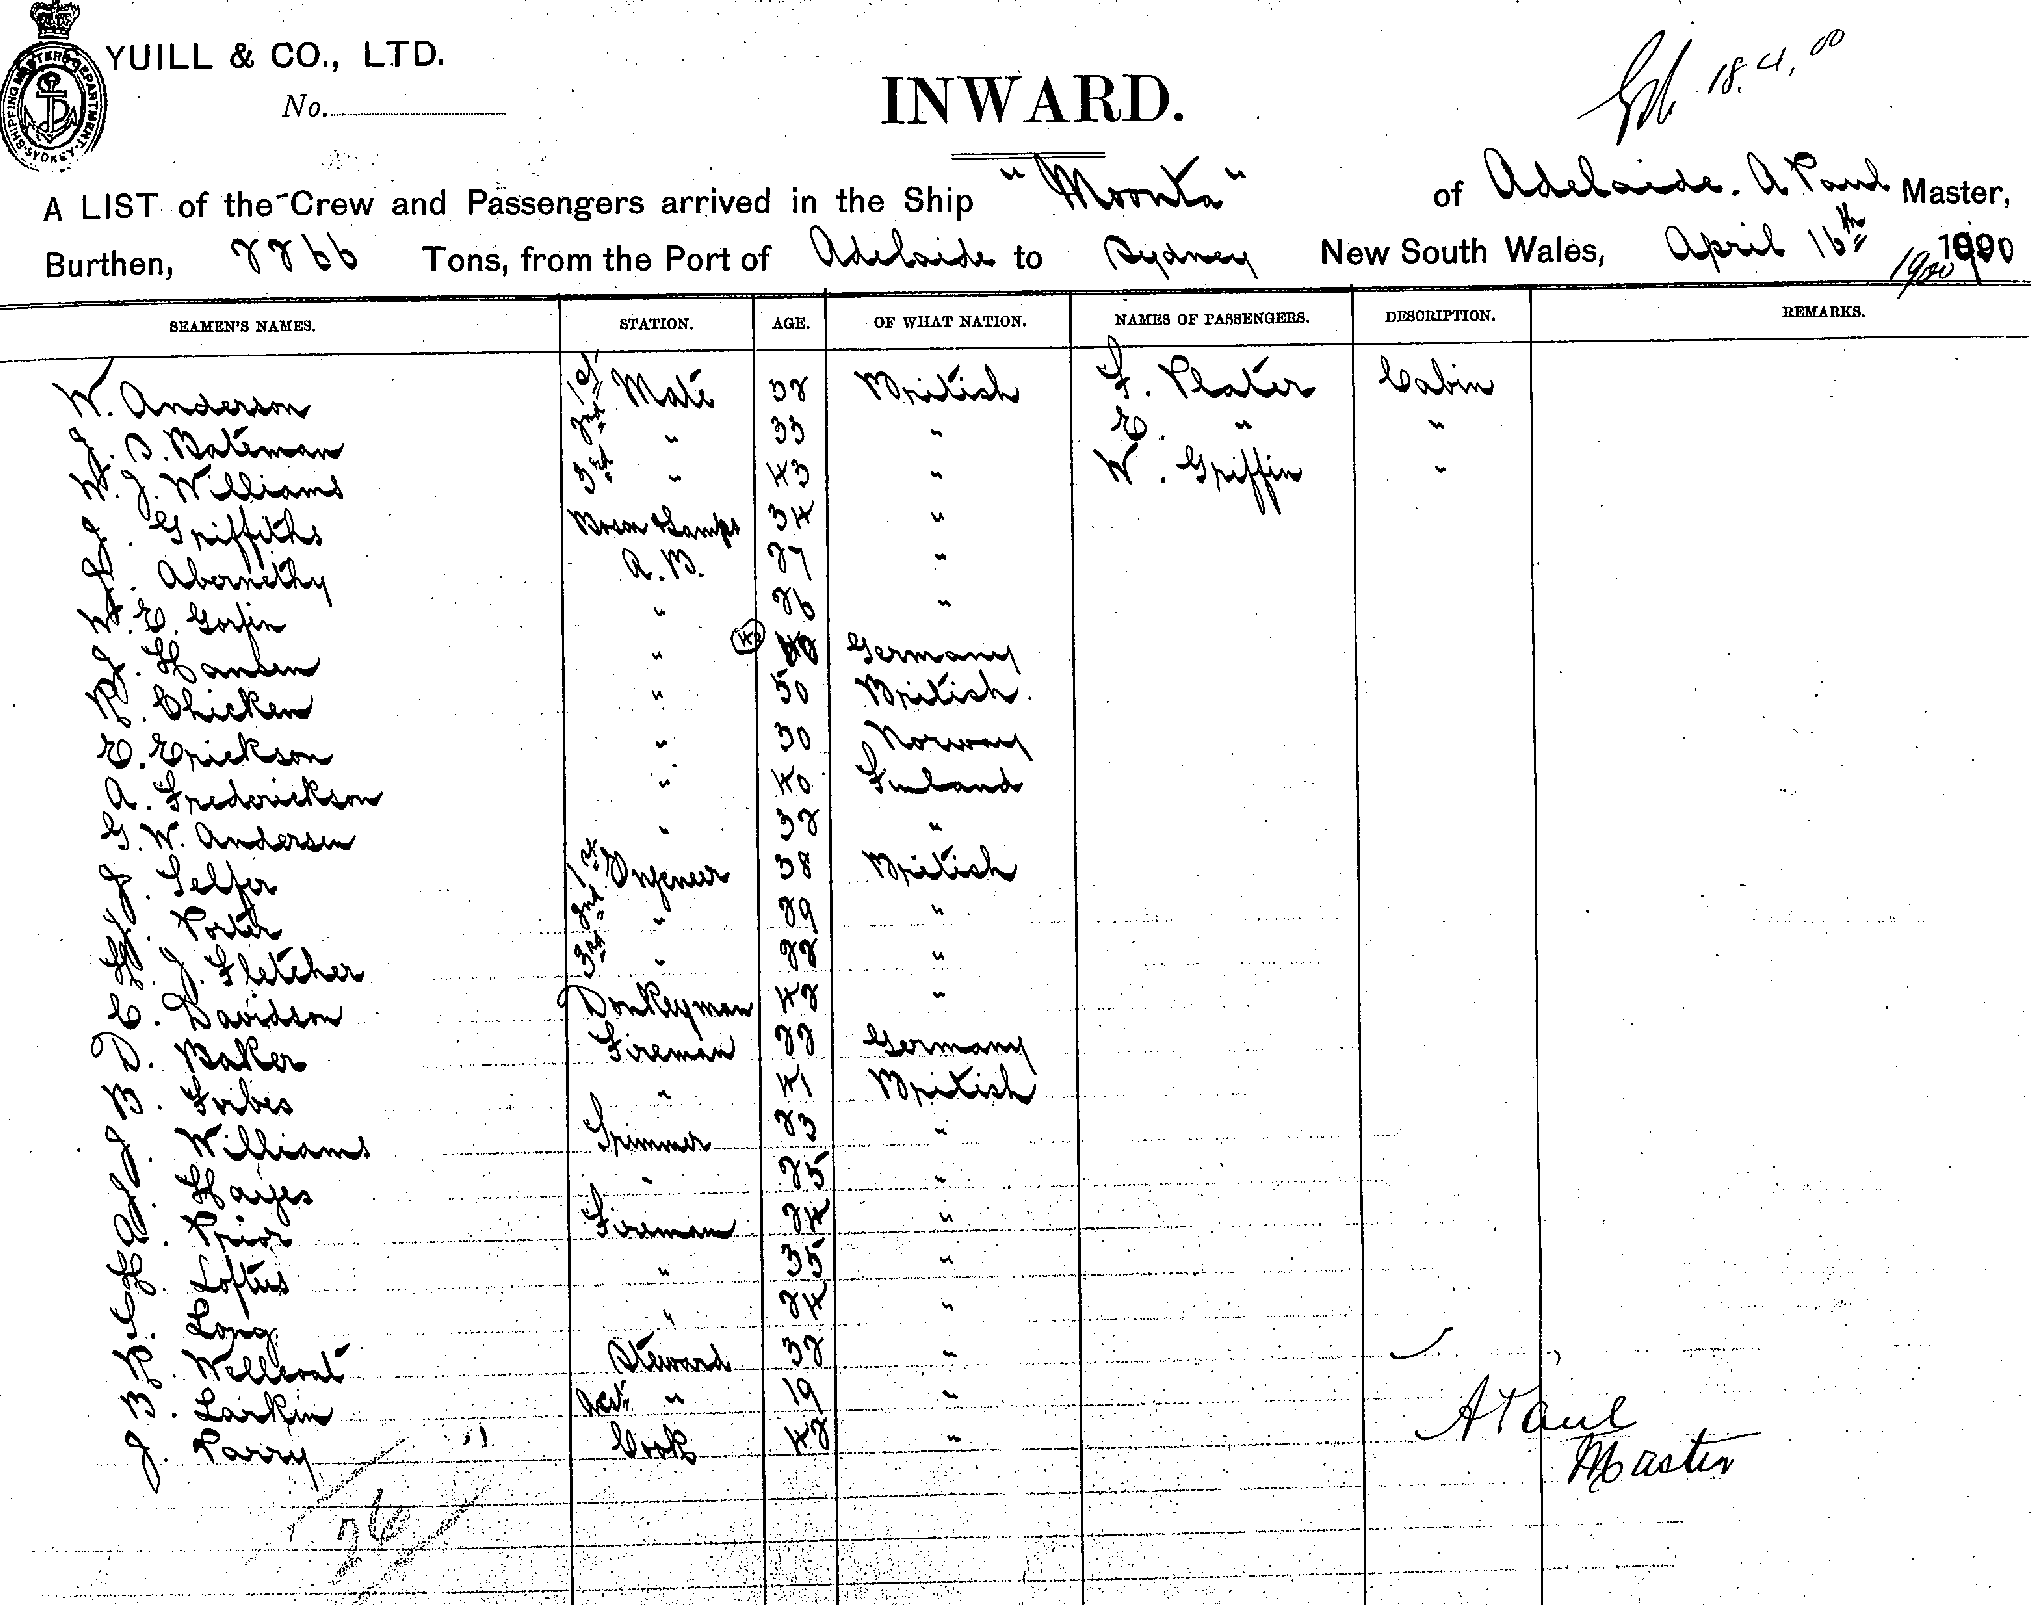 SHIPPING MASTERS DEPARTMENT. SYDNEY
YUILL & CO., LTD.
No.
18.4.00
INWARD.
A LIST of the Crew and Passengers arrived in the Ship "Moonta" of Adelaide. A Paul Master,
Burthen, 2266 Tons, from the Port of Adelaide to Sydney New South Wales, April 16th 1900
SEAMEN'S NAMES. STATION. AGE. OF WHAT NATION. NAMES OF PASSENGERS. DESCRIPTION. REMARKS.
W. Anderson 1st Mate 32 British F. Plater Cabin
J. S. Bateman 2nd " 33 " E. " "
W. J. Williams 3rd " 43 " W. Griffin "
J. Griffiths Bosn & Lamps 34 "
J. Abernethy A.B. 27 "
W. E. Gorfin " 26 "
J. Hansen " Germany
R. Chicken " 50 British.
E. Erickson " 30 Norway
A. Frederickson " 40 Finland
G. W. Andersen " 32 "
J. Telfer 1st Engineer 38 British
Porter 2nd " 29 "
H. J. Fletcher 3rd " 22 "
C. Davidson Donkeyman 42 "
D. Baker Fireman 22 Germany
B. Forbes " 41 British
J. Williams Trimmer 23 "
J. Hayes " 25 "
Prior Fireman 24 "
H. Loftus " 35 "
C. Long " 24 "
R. Steward 32 "
B. Larkin Asst " 19 "
J. Parry Cook 42 "
A Paul
Master
26